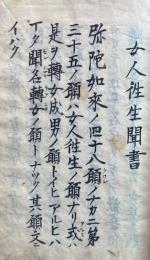 女人往生聞書
弥陀如来ノ四十八願ノナカニ第
三十五ノ願ハ女人往生ノ願ナリ或ハ
是ヲ轉女成男ノ願トイヒアルヒハ
聞名轉女ノ願トナツク其願文ニ
イハク